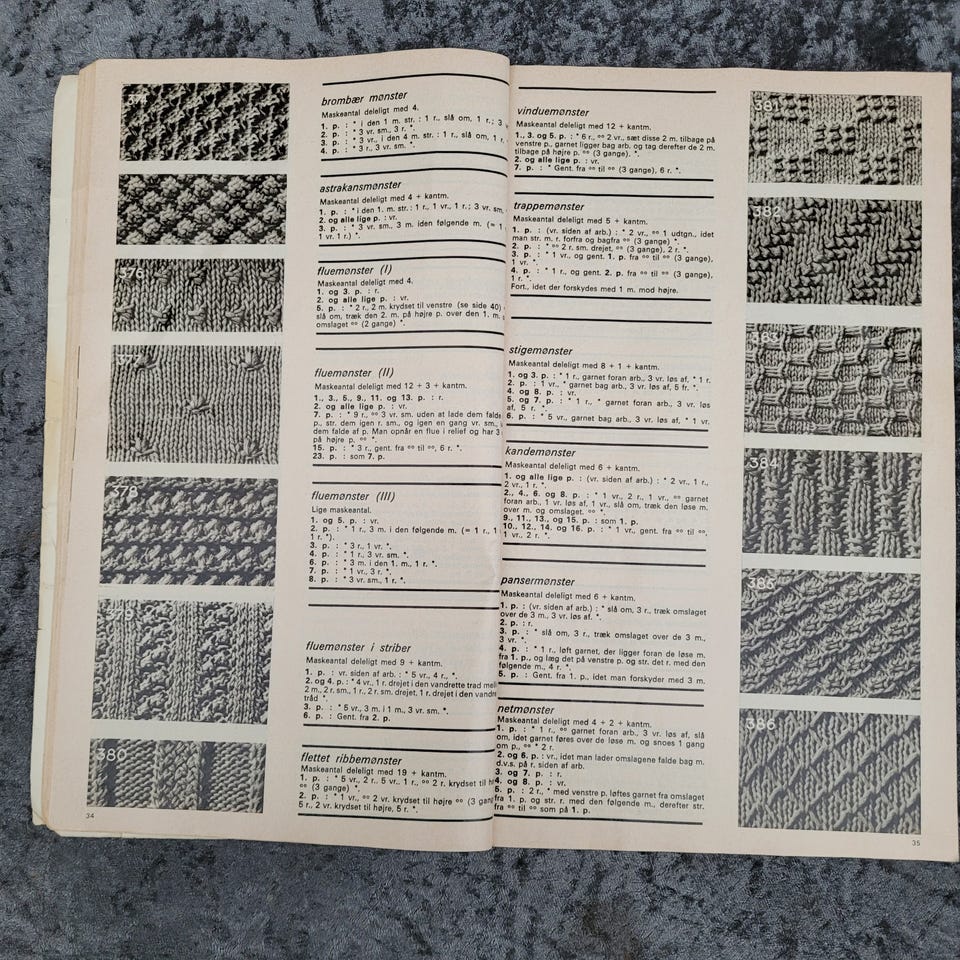 brombær mønster
Maskeantal deleligt med 4.
1. p. : * i den 1 m. str. : 1 r., slå om, 1 r.; 3 v
2. p. : * 3 vr. sm., 3 r. *.
3. p. : * 3 vr., i den 4 m. str. : 1 r., slå om, 1 r
4. p. : * 3 r., 3 vr. sm. *.
astrakansmønster
Maskeantal deleligt med 4 + kantm.
1. p. : * i den 1 m. str. : 1 r., 1 vr., 1 r.; 3 vr. sm.
2. og alle lige p. : vr.
3. p. : * 3 vr. sm., 3 m. iden følgende m. (= 1
1 vr. 1 r.) *.
376
fluemønster (I)
Maskeantal deleligt med 4.
1. og 3. p. : r.
2. og alle lige p. : vr.
5. p. : * 2 r., 2 m. krydset til venstre (se side 40)
slå om, træk den 2. m. på højre p. over den 1. m.
omslaget °° (2 gange) *.
377
fluemønster (II)
Maskeantal deleligt med 12 + 3 + kantm.
1., 3., 5., 9., 11. og 13. p. : r.
2. og alle lige p. : vr.
7. p. : * 9 r., °° 3 vr. sm. uden at lade dem falde
p., str. dem igen r. sm., og igen en gang vr. sm.,
dem falde af p. Man opnår en flue i relief og har 3
på højre p. °° *.
15. p. : * 3 r., gent. fra °° til °°, 6 r. *.
23. p. : som 7. p.
378
fluemønster (III)
Lige maskeantal.
1. og 5. p. : vr.
2. p. : * 1 r., 3 m. i den følgende m. (= 1 r., 1
1 r. *).
3. p. : * 3 r., 1 vr. *.
4. p. : * 1 r., 3 vr. sm. *.
6. p. : * 3 m. i den 1. m., 1 r. *.
7. p. : * 1 vr., 3 r. *.
8. p. : * 3 vr. sm., 1 r. *.
fluemønster i striber
Maskeantal deleligt med 9 + kantm.
1. p. : vr. siden af arb. : * 5 vr., 4 r., *.
2. og 4. p. : * 4 vr., 1 r. drejet i den vandrette tråd mell
2 m., 2 r. sm., 1 r., 2 r. sm. drejet, 1 r. drejet i den vandr
tråd *.
3. p. : * 5 vr., 3 m. i 1 m., 3 vr. sm. *.
6. p. : Gent. fra 2. p.
380
flettet ribbemønster
Maskeantal deleligt med 19 + kantm.
1. p. : * 5 vr., 2 r.. 5 vr.. 1 r., °° 2 r. krydset til
°° (3 gange) *.
2. p. : * 1 vr., °° 2 vr. krydset til højre °° (3 gang
5 r., 2 vr. krydset til højre, 5 r. *.
34
381
vinduemønster
Maskeantal deleligt med 12 + kantm.
1., 3. og 5. p. : * 6 r., °° 2 vr., sæt disse 2 m. tilbage på
venstre p., garnet ligger bag arb. og tag derefter de 2 m.
tilbage på højre p. °° (3 gange). *.
2. og alle lige p. : vr.
7. p. : * Gent. fra °° til °° (3 gange), 6 r. *.
382
trappemønster
Maskeantal deleligt med 5 + kantm.
1. p. : (vr. siden af arb.) : * 2 vr., °° 1 udtgn., idet
man str. m. r. forfra og bagfra °° (3 gange) *.
2. p. : * °° 2 r. sm. drejet, °° (3 gange), 2 r. *.
3. p. : * 1 vr., og gent. 1. p. fra °° til °° (3 gange),
1 vr. *.
4. p. : * 1 r., og gent. 2. p. fra °° til °° (3 gange),
1 r. *.
Fort., idet der forskydes med 1 m. mod højre.
383
stigemønster
Maskeantal deleligt med 8 + 1 + kantm.
1. og 3. p. : * 1 r., garnet foran arb., 3 vr. løs af, * 1 r.
2. p. : 1 vr., * garnet bag arb., 3 vr. løs af, 5 fr. *.
4. og 8. p. : vr.
5. og 7. p. : * 1 r., * garnet foran arb., 3 vr. løs
af, 5 r. *.
6. p. : * 5 vr., garnet bag arb., 3 vr. løs af, * 1 vr.
384
kandemønster
Maskeantal deleligt med 6 + kantm.
1. og alle lige p. : (vr. siden af arb.) : * 2 vr., 1 r.,
2 vr., 1 r. *.
2., 4., 6. og 8. p. : * 1 vr., 2 r., 1 vr., °° garnet
foran arb., 1 vr. løs af, 1 vr., slå om, træk den løse m.
over m. og omslaget. °° *.
9., 11., 13., og 15. p. : som 1. p.
10., 12., 14. og 16. p. : * 1 vr., gent. fra °° til °°,
1 vr., 2 r. *.
385
pansermønster
Maskeantal deleligt med 6 + kantm.
1. p. : (vr. siden af arb.) : * slå om, 3 r., træk omslaget
over de 3 m., 3 vr. løs af. *.
2. p. : r.
3. p. : * slå om, 3 r., træk omslaget over de 3 m.,
3 vr. *.
4. p. : * 1 r., løft garnet, der ligger foran de løse m.
fra 1. p., og læg det på venstre p. og str. det r. med den
følgende m., 4 r. *.
5. p. : Gent. fra 1. p., idet man forskyder med 3 m.
386
netmønster
Maskeantal deleligt med 4 + 2 + kantm.
1. p. : * 1 r., °° garnet foran arb., 3 vr. løs af, slå
om, idet garnet føres over de løse m. og snoes 1 gang
om p., °° * 2 r.
2. og 6. p. : vr., idet man lader omslagene falde bag m.
d.v.s. på r. siden af arb.
3. og 7. p. : r.
4. og 8. p. : vr.
5. p. : 2 r., * med venstre p. løftes garnet fra omslaget
fra 1. p. og str. r. med den følgende m., derefter str.
fra °° til °° som på 1. p.
35